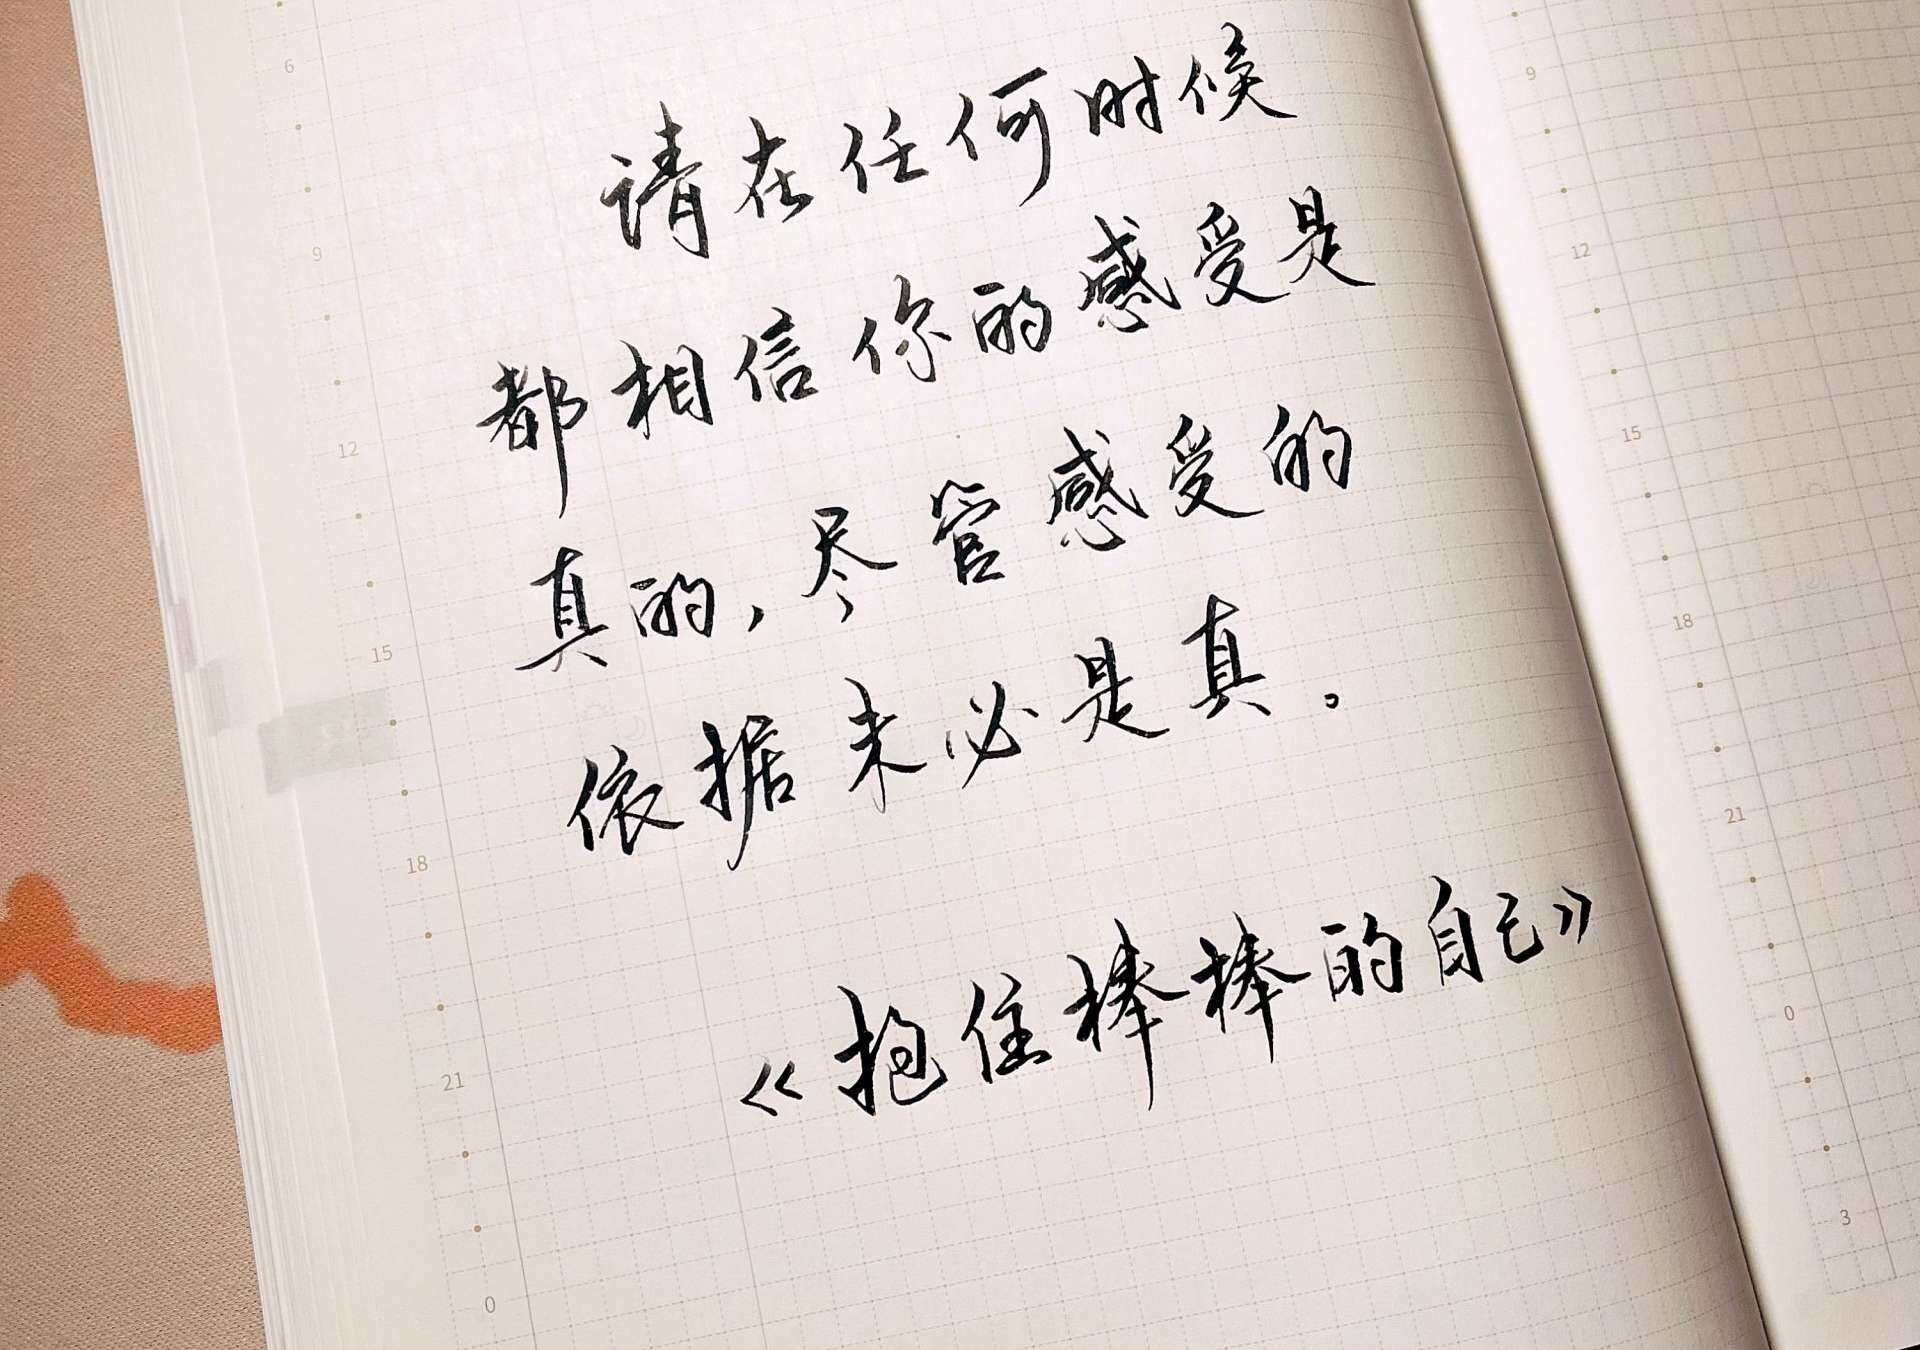 请在任何时候
都相信你的感受是
真的，尽管感受的
依据未必是真。
《抱住棒棒的自己》
6
9
12
15
18
21
0
9
12
15
18
21
0
3